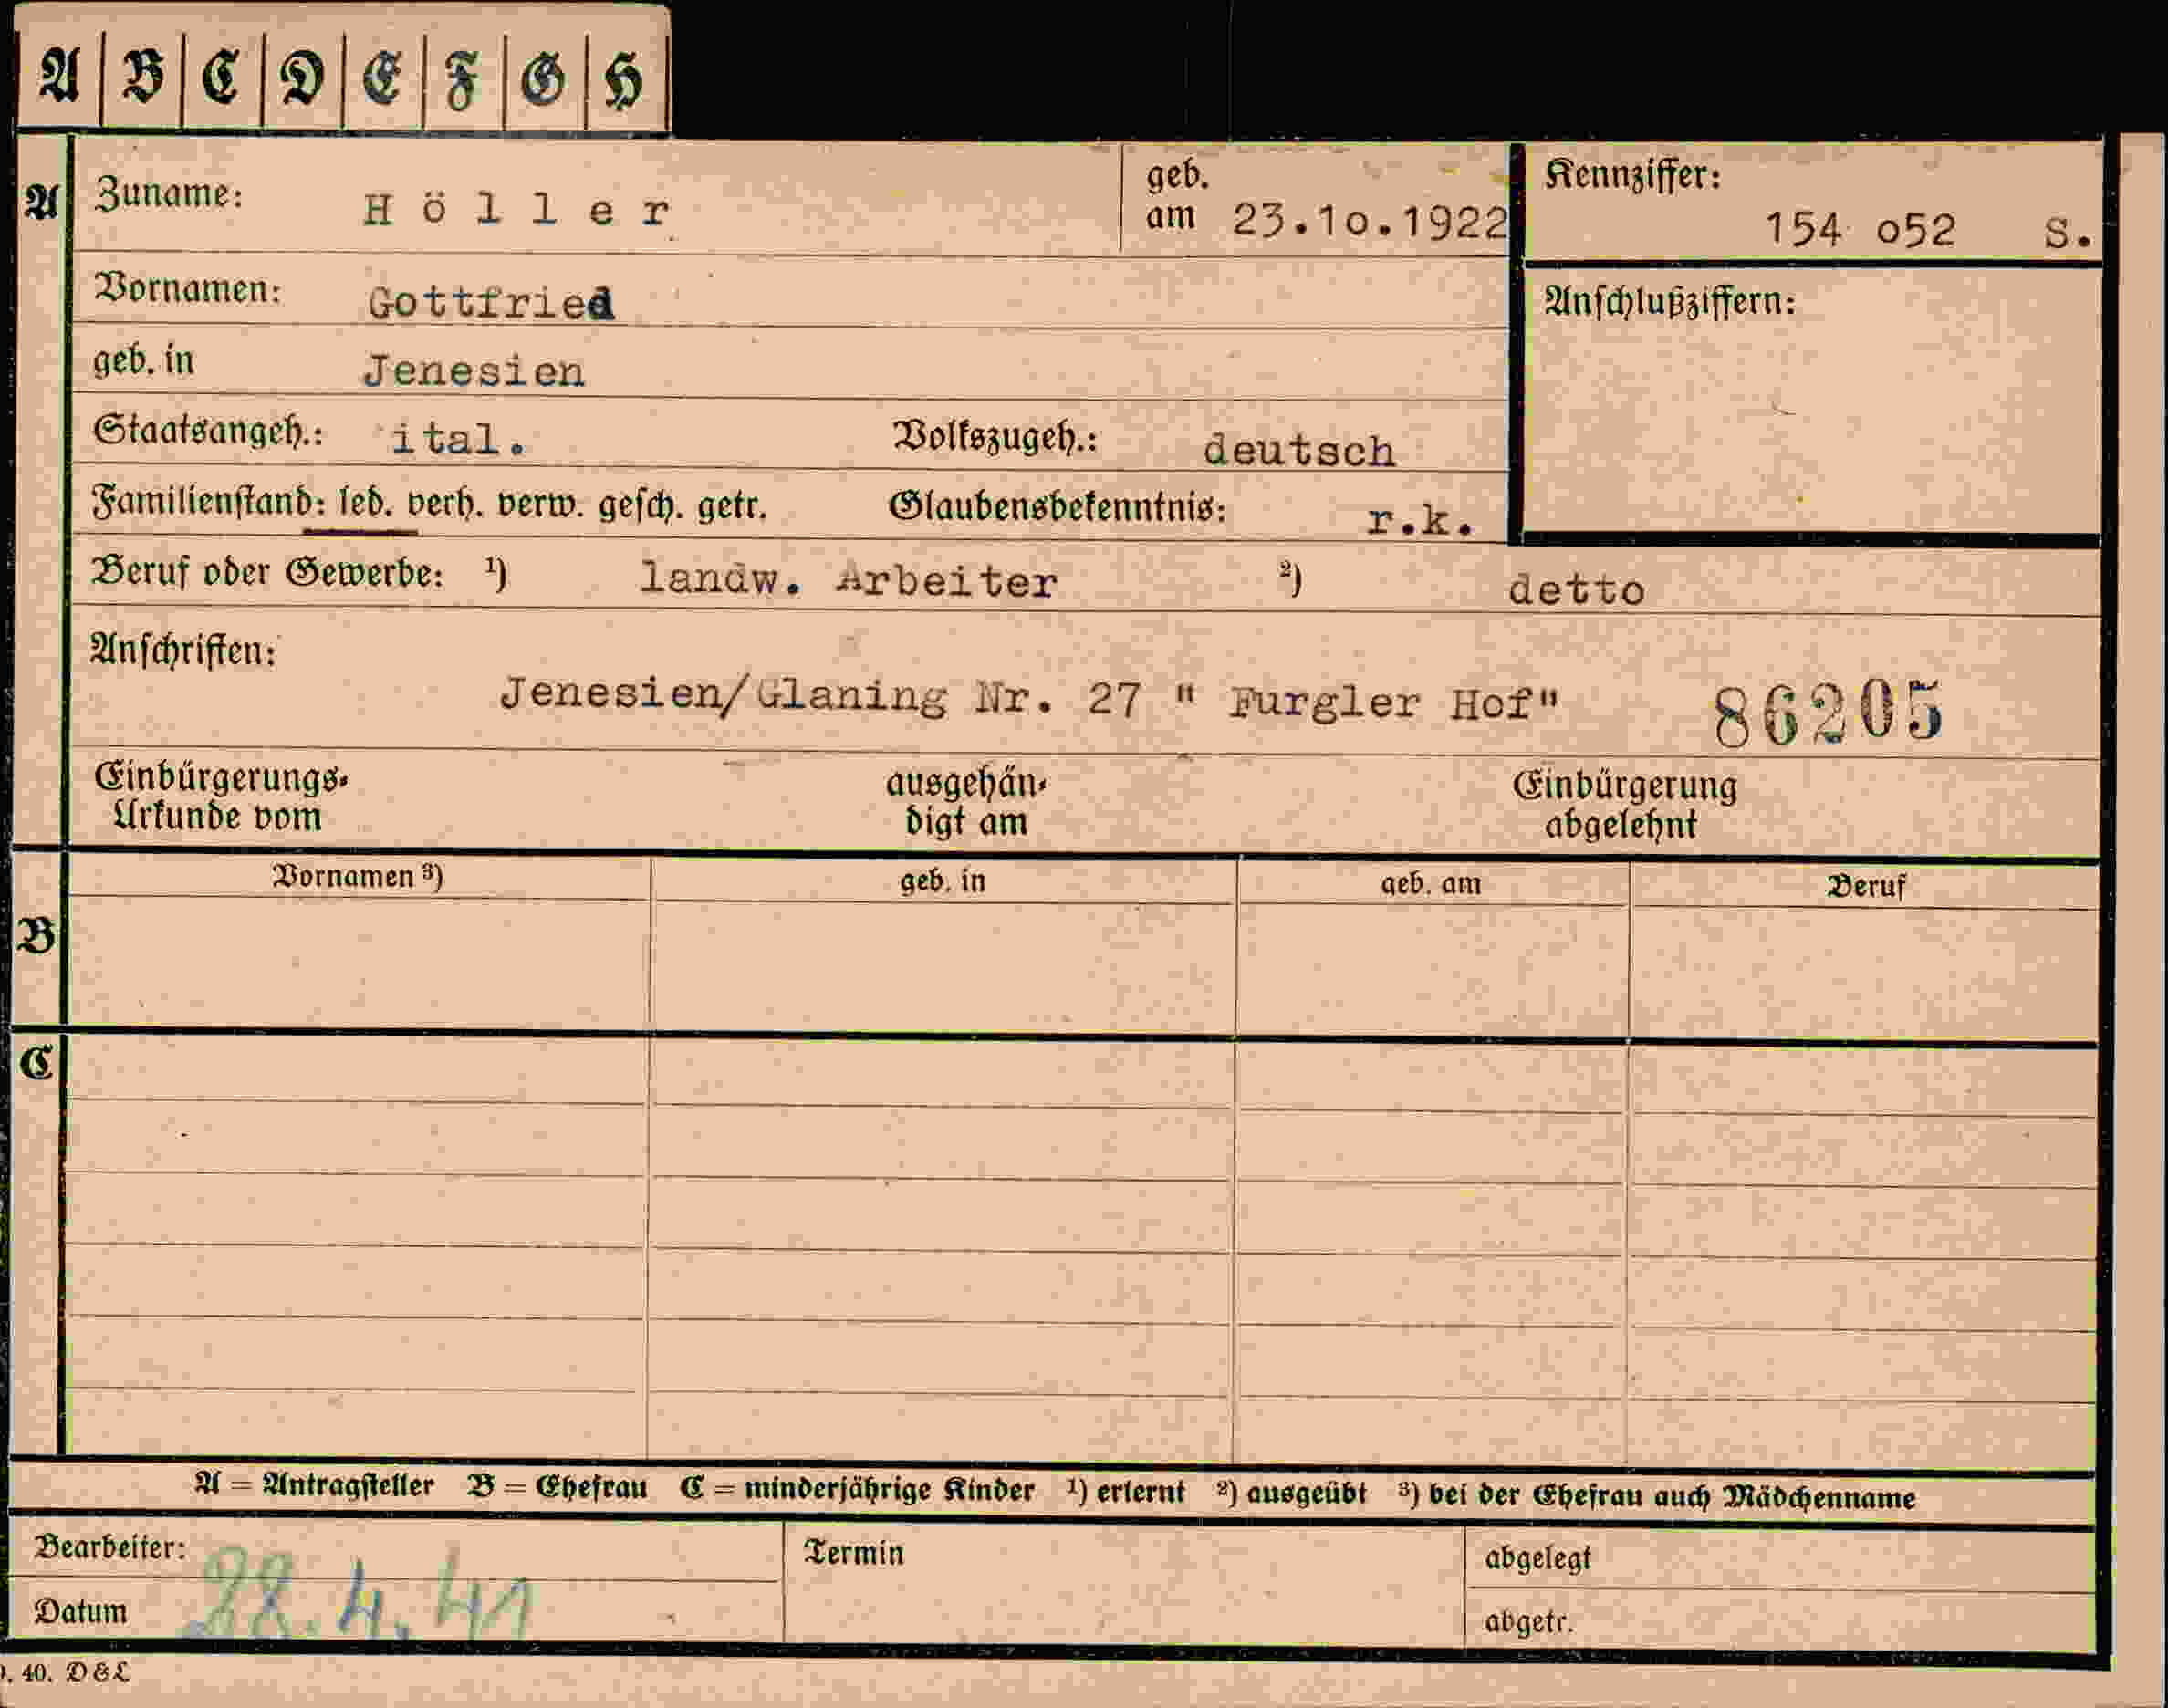 A B C D E F G H
A Zuname: Höller geb. am 23.10.1922 Kennziffer: 154 052 S.
Vornamen: Gottfried Anschlußziffern:
geb. in Jenesien
Staatsangeh.: ital. Volkszugeh.: deutsch
Familienstand: led. verh. verw. gesch. getr. Glaubensbekenntnis: r.k.
Beruf oder Gewerbe: ¹) landw. Arbeiter ²) detto
Anschriften:
Jenesien/Glaning Nr. 27 " Furgler Hof" 86205
Einbürgerungs- ausgehän- Einbürgerung
Urkunde vom digt am abgelehnt
Vornamen ³) geb. in geb. am Beruf
B
C
A = Antragsteller B = Ehefrau C = minderjährige Kinder ¹) erlernt ²) ausgeübt ³) bei der Ehefrau auch Mädchenname
Bearbeiter: Termin abgelegt
Datum 28.4.41 abgetr.
40. D&L